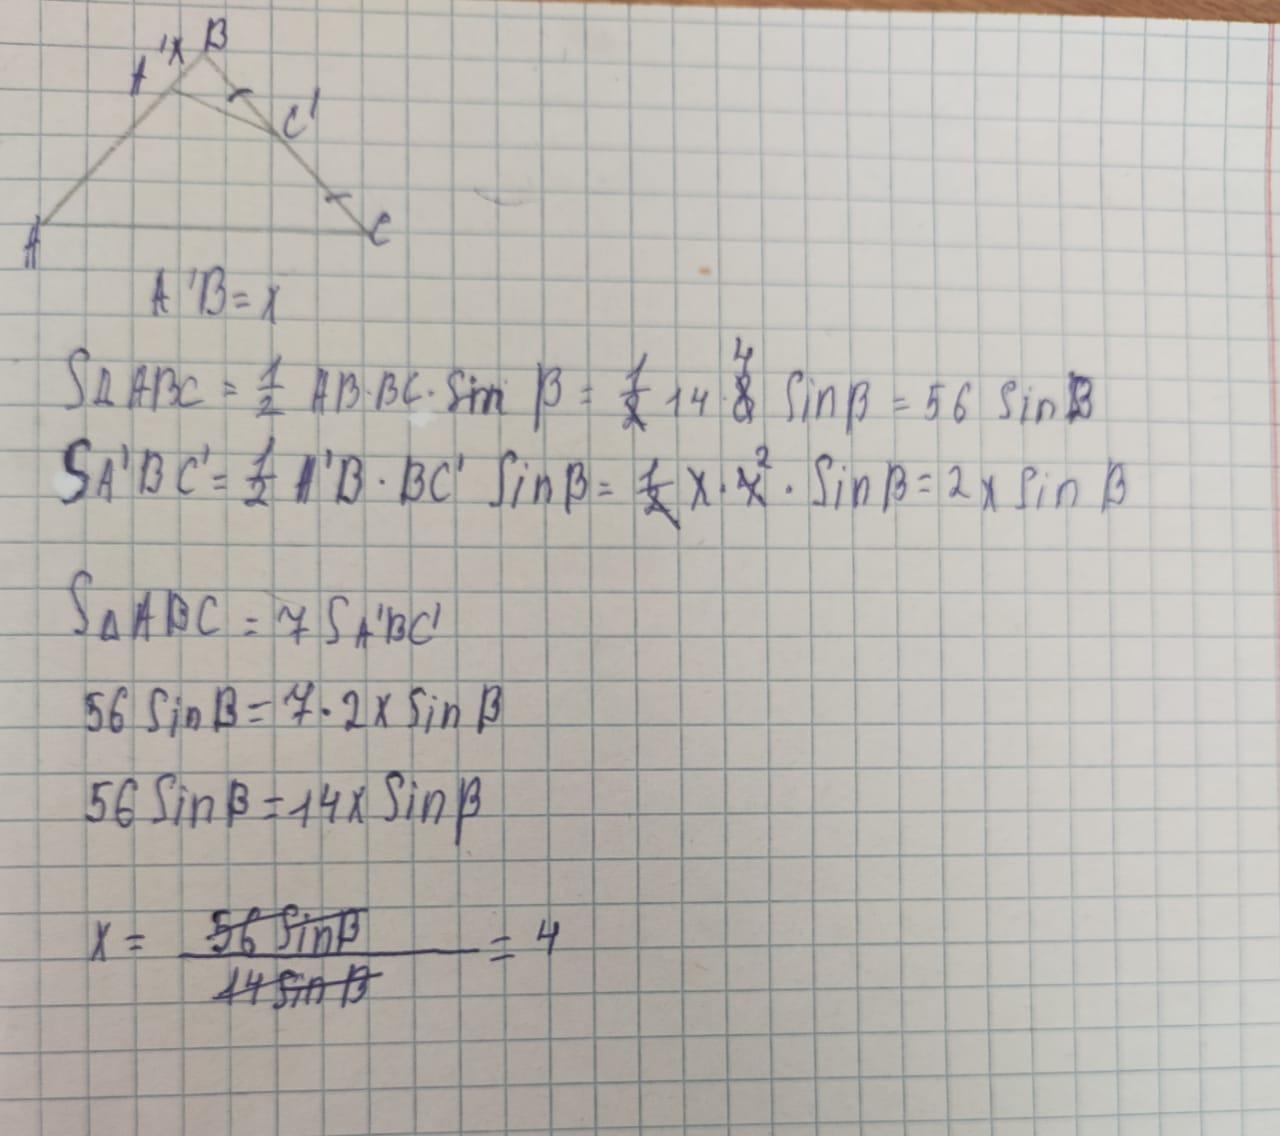 A' x B
C'
A C
A'B = x
S△ABC = 1/2 AB·BC· Sin β = 1/2 14 · 8 4 Sin β = 56 Sin B
S A'BC' = 1/2 A'B · BC' Sin β = 1/2 x · 4 2 · Sin β = 2x Sin β
S△ABC = 7 S A'BC'
56 Sin β = 7 · 2x Sin β
56 Sin β = 14x Sin β
x = 56 Sin β / 14 Sin β = 4